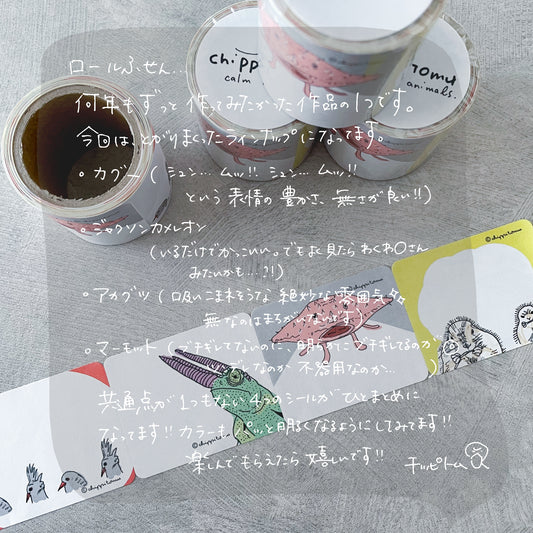 ロールふせん...
何年もずっと作ってみたかった作品の1つです。
今回は、とがりまくったラインナップになってます。
・カグー(シュン... ムッ!! シュン... ムッ!!
という表情の豊かさ、無さが良い!!)
・ジャクソンカメレオン
(いるだけでかっこいい。でもよく見たらわくわく〇さん
みたいかも...?!)
・アカグツ(吸いこまれそうな絶妙な雰囲気
無なのはまちがいないです)
・マーモット(ブチギレてないのに、明らかにブチギレてるのが
なのか不器用なのか... )
共通点が1つもない4つのシールがひとまとめに
なってます!! カラーもパッと明るくなるようにしてみてます!!
楽しんでもらえたら嬉しいです!! チッピトム
chippi
calm
tomu
animals.
©chippi tomu
©chippi tomu
©chippi tomu
©chippi tomu